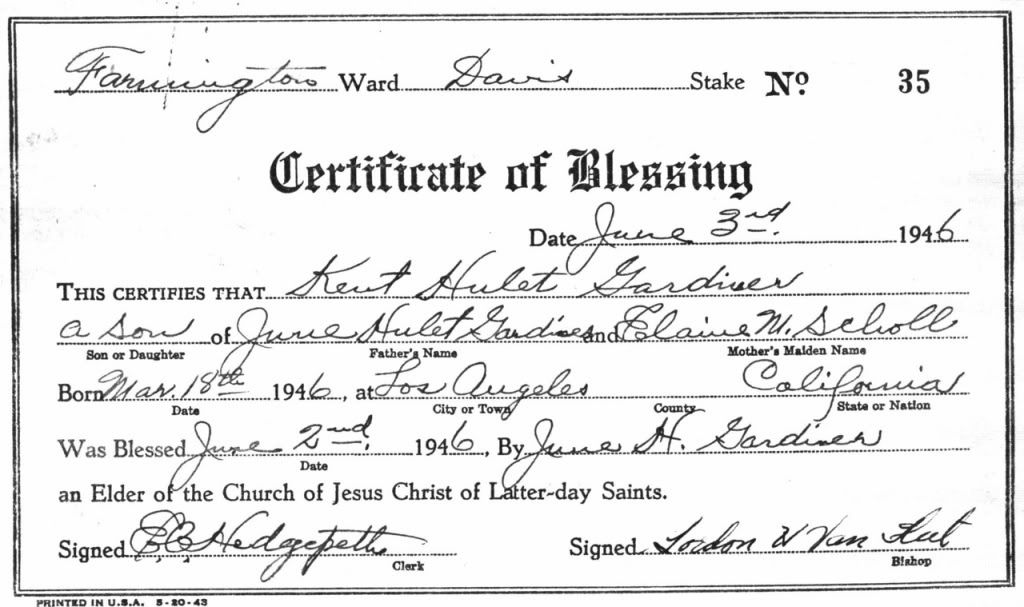 Farmington Ward Davis Stake No. 35
Certificate of Blessing
Date June 3rd. 1946
THIS CERTIFIES THAT Kent Hulet Gardiner
a son of June Hulet Gardiner and Elaine M. Scholl
Son or Daughter Father's Name Mother's Maiden Name
Born Mar. 18th 1946, at Los Angeles California
Date City or Town County State or Nation
Was Blessed June 2nd. 1946, By June H. Gardiner
Date
an Elder of the Church of Jesus Christ of Latter-day Saints.
Signed Hedgepeth Signed Van Fleet
Clerk Bishop
PRINTED IN U.S.A. 5-20-43